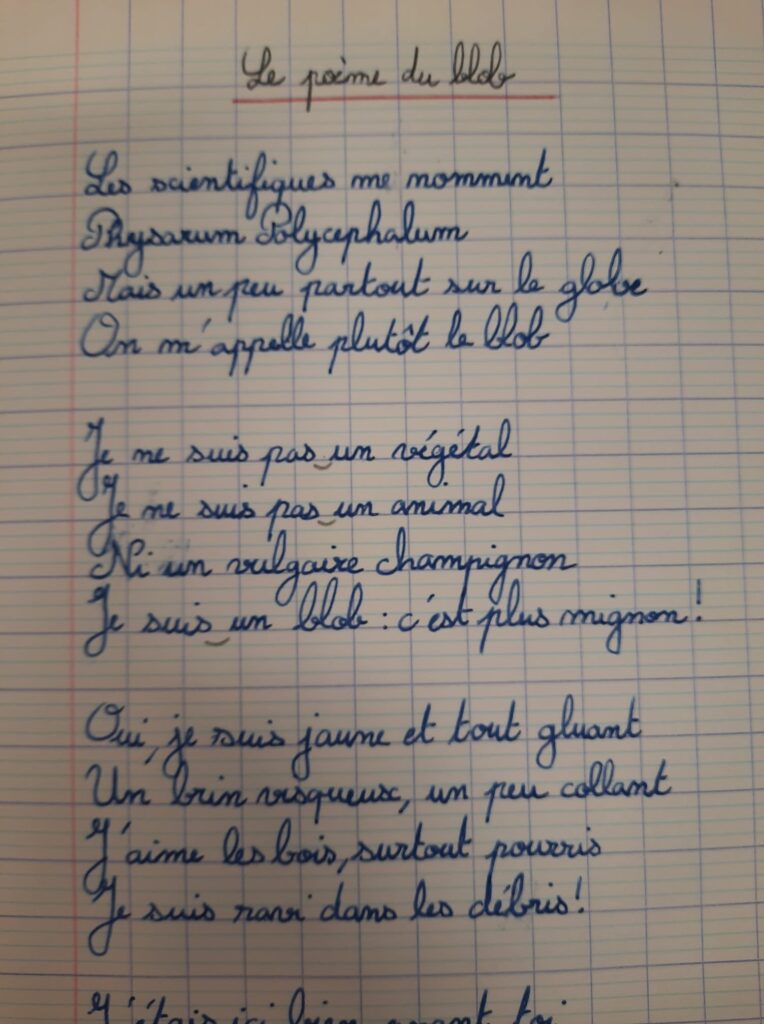 Le poème du blob
Les scientifiques me nomment
Physarum Polycephalum
Mais un peu partout sur le globe
On m'appelle plutôt le blob
Je ne suis pas un végétal
Je ne suis pas un animal
Ni un vulgaire champignon
Je suis un blob : c'est plus mignon !
Oui, je suis jaune et tout gluant
Un brin visqueux, un peu collant
J'aime les bois, surtout pourris
Je suis ravi dans les débris !
J'étais ici bien avant toi